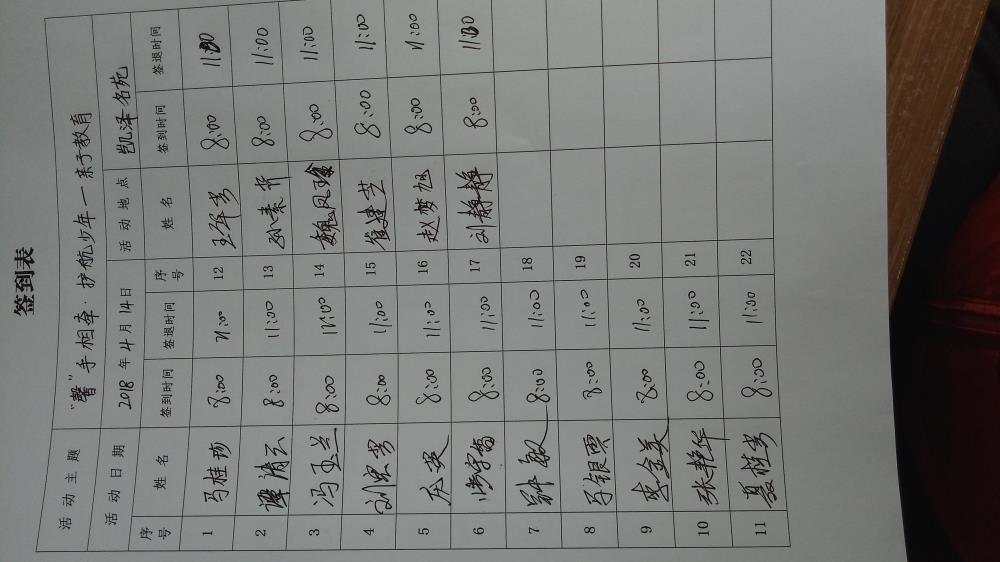 签到表
活动主题 “馨”手相牵·护航少年—亲子教育
活动日期 2018年4月14日 活动地点 凯泽名苑
序号 姓名 签到时间 签退时间 序号 姓名 签到时间 签退时间
1 马桂 8:00 11:00 12 8:00 11:00
2 谭清云 8:00 11:00 13 孙素 8:00 11:00
3 冯玉兰 8:00 11:00 14 魏凤 8:00 11:00
4 刘 8:00 11:00 15 崔建芝 8:00 11:00
5 8:00 11:00 16 赵梦旭 8:00 11:00
6 8:00 11:00 17 刘静静 8:00 11:00
7 钟敏 8:00 11:00 18
8 马银 8:00 11:00 19
9 李金美 8:00 11:00 20
10 张艳华 8:00 11:00 21
11 夏桂 8:00 11:00 22